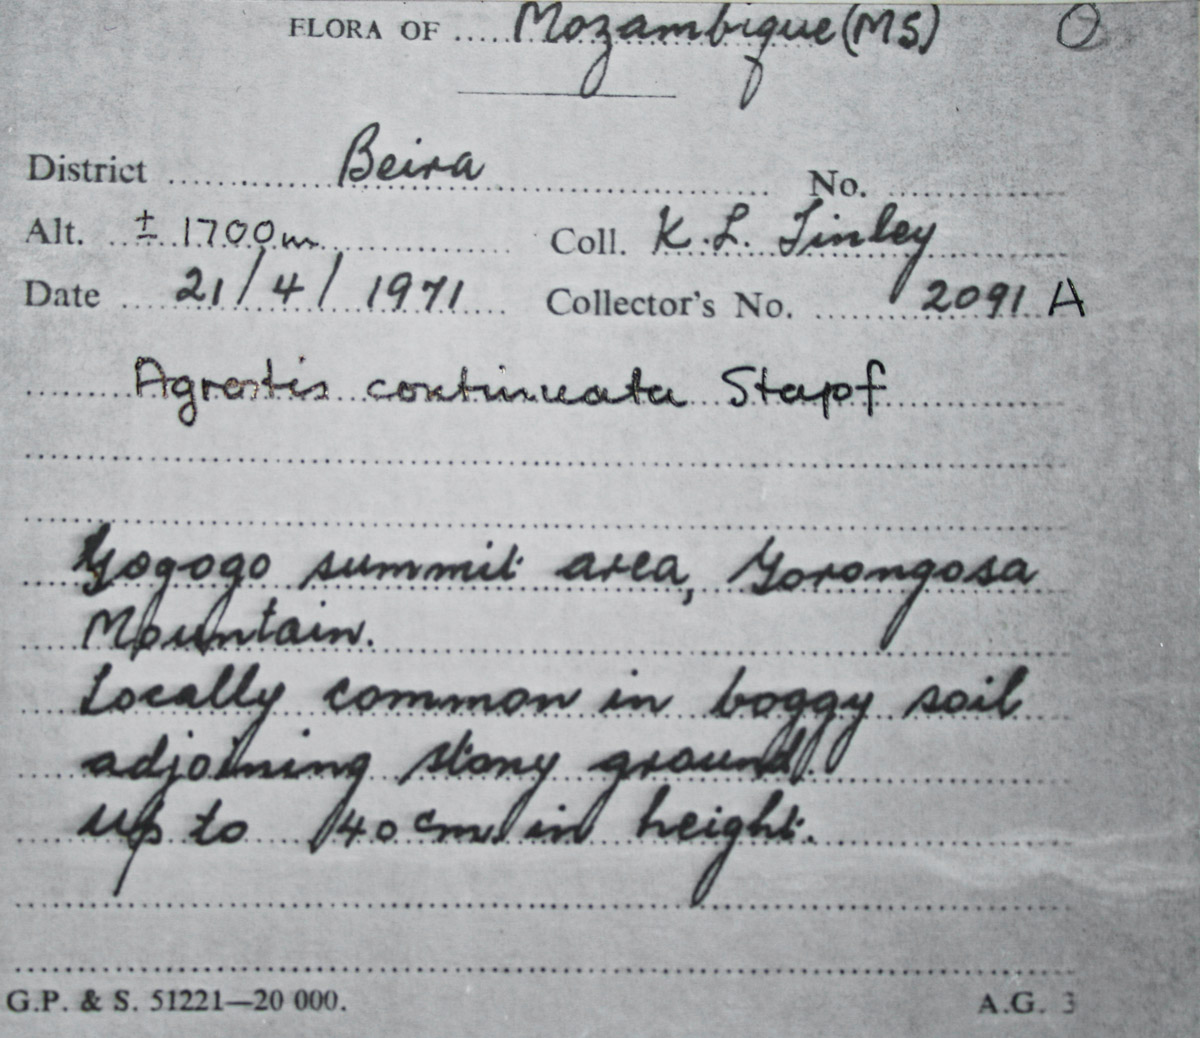 FLORA OF .... Mozambique (MS) O
District ........ Beira ........ No. ........
Alt. ± 1700m ........ Coll. K. L. Tinley
Date .... 21/4/1971 .... Collector's No. ...... 2091 A
Agrostis continuata Stapf
Gogogo summit area, Gorongosa
Mountain.
Locally common in boggy soil
adjoining stony ground.
up to 40 cm in height.
G.P. & S. 51221—20 000. A.G. 3